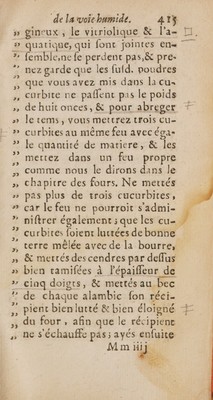 de la voie humide. 415
„ gineux, le vitriolique & l'a-
„ quatique, qui sont jointes en-
„ semble, ne se perdent pas, & pre-
„ nez garde que les susd. poudres
„ que vous avez mis dans la cu-
„ curbite ne passent pas le poids
„ de huit onces, & pour abreger
„ le tems, vous mettrez trois cu-
„ curbites au même feu avec éga-
„ le quantité de mariere, & les
„ mettez dans un feu propre
„ comme nous le dirons dans le
„ chapitre des fours. Ne mettés
„ pas plus de trois cucurbites,
„ car le feu ne pourroit s'admi-
„ nistrer également; que les cu-
„ curbites soient luttées de bonne
„ terre mêlée avec de la bourre,
„ & mettés des cendres par dessus
„ bien tamisées à l'épaisseur de
„ cinq doigts, & mettés au bec
„ de chaque alambic son réci-
„ pient bien lutté & bien éloigné
„ du four, afin que le récipient
„ ne s'échauffe pas; ayés ensuite
M m iiij